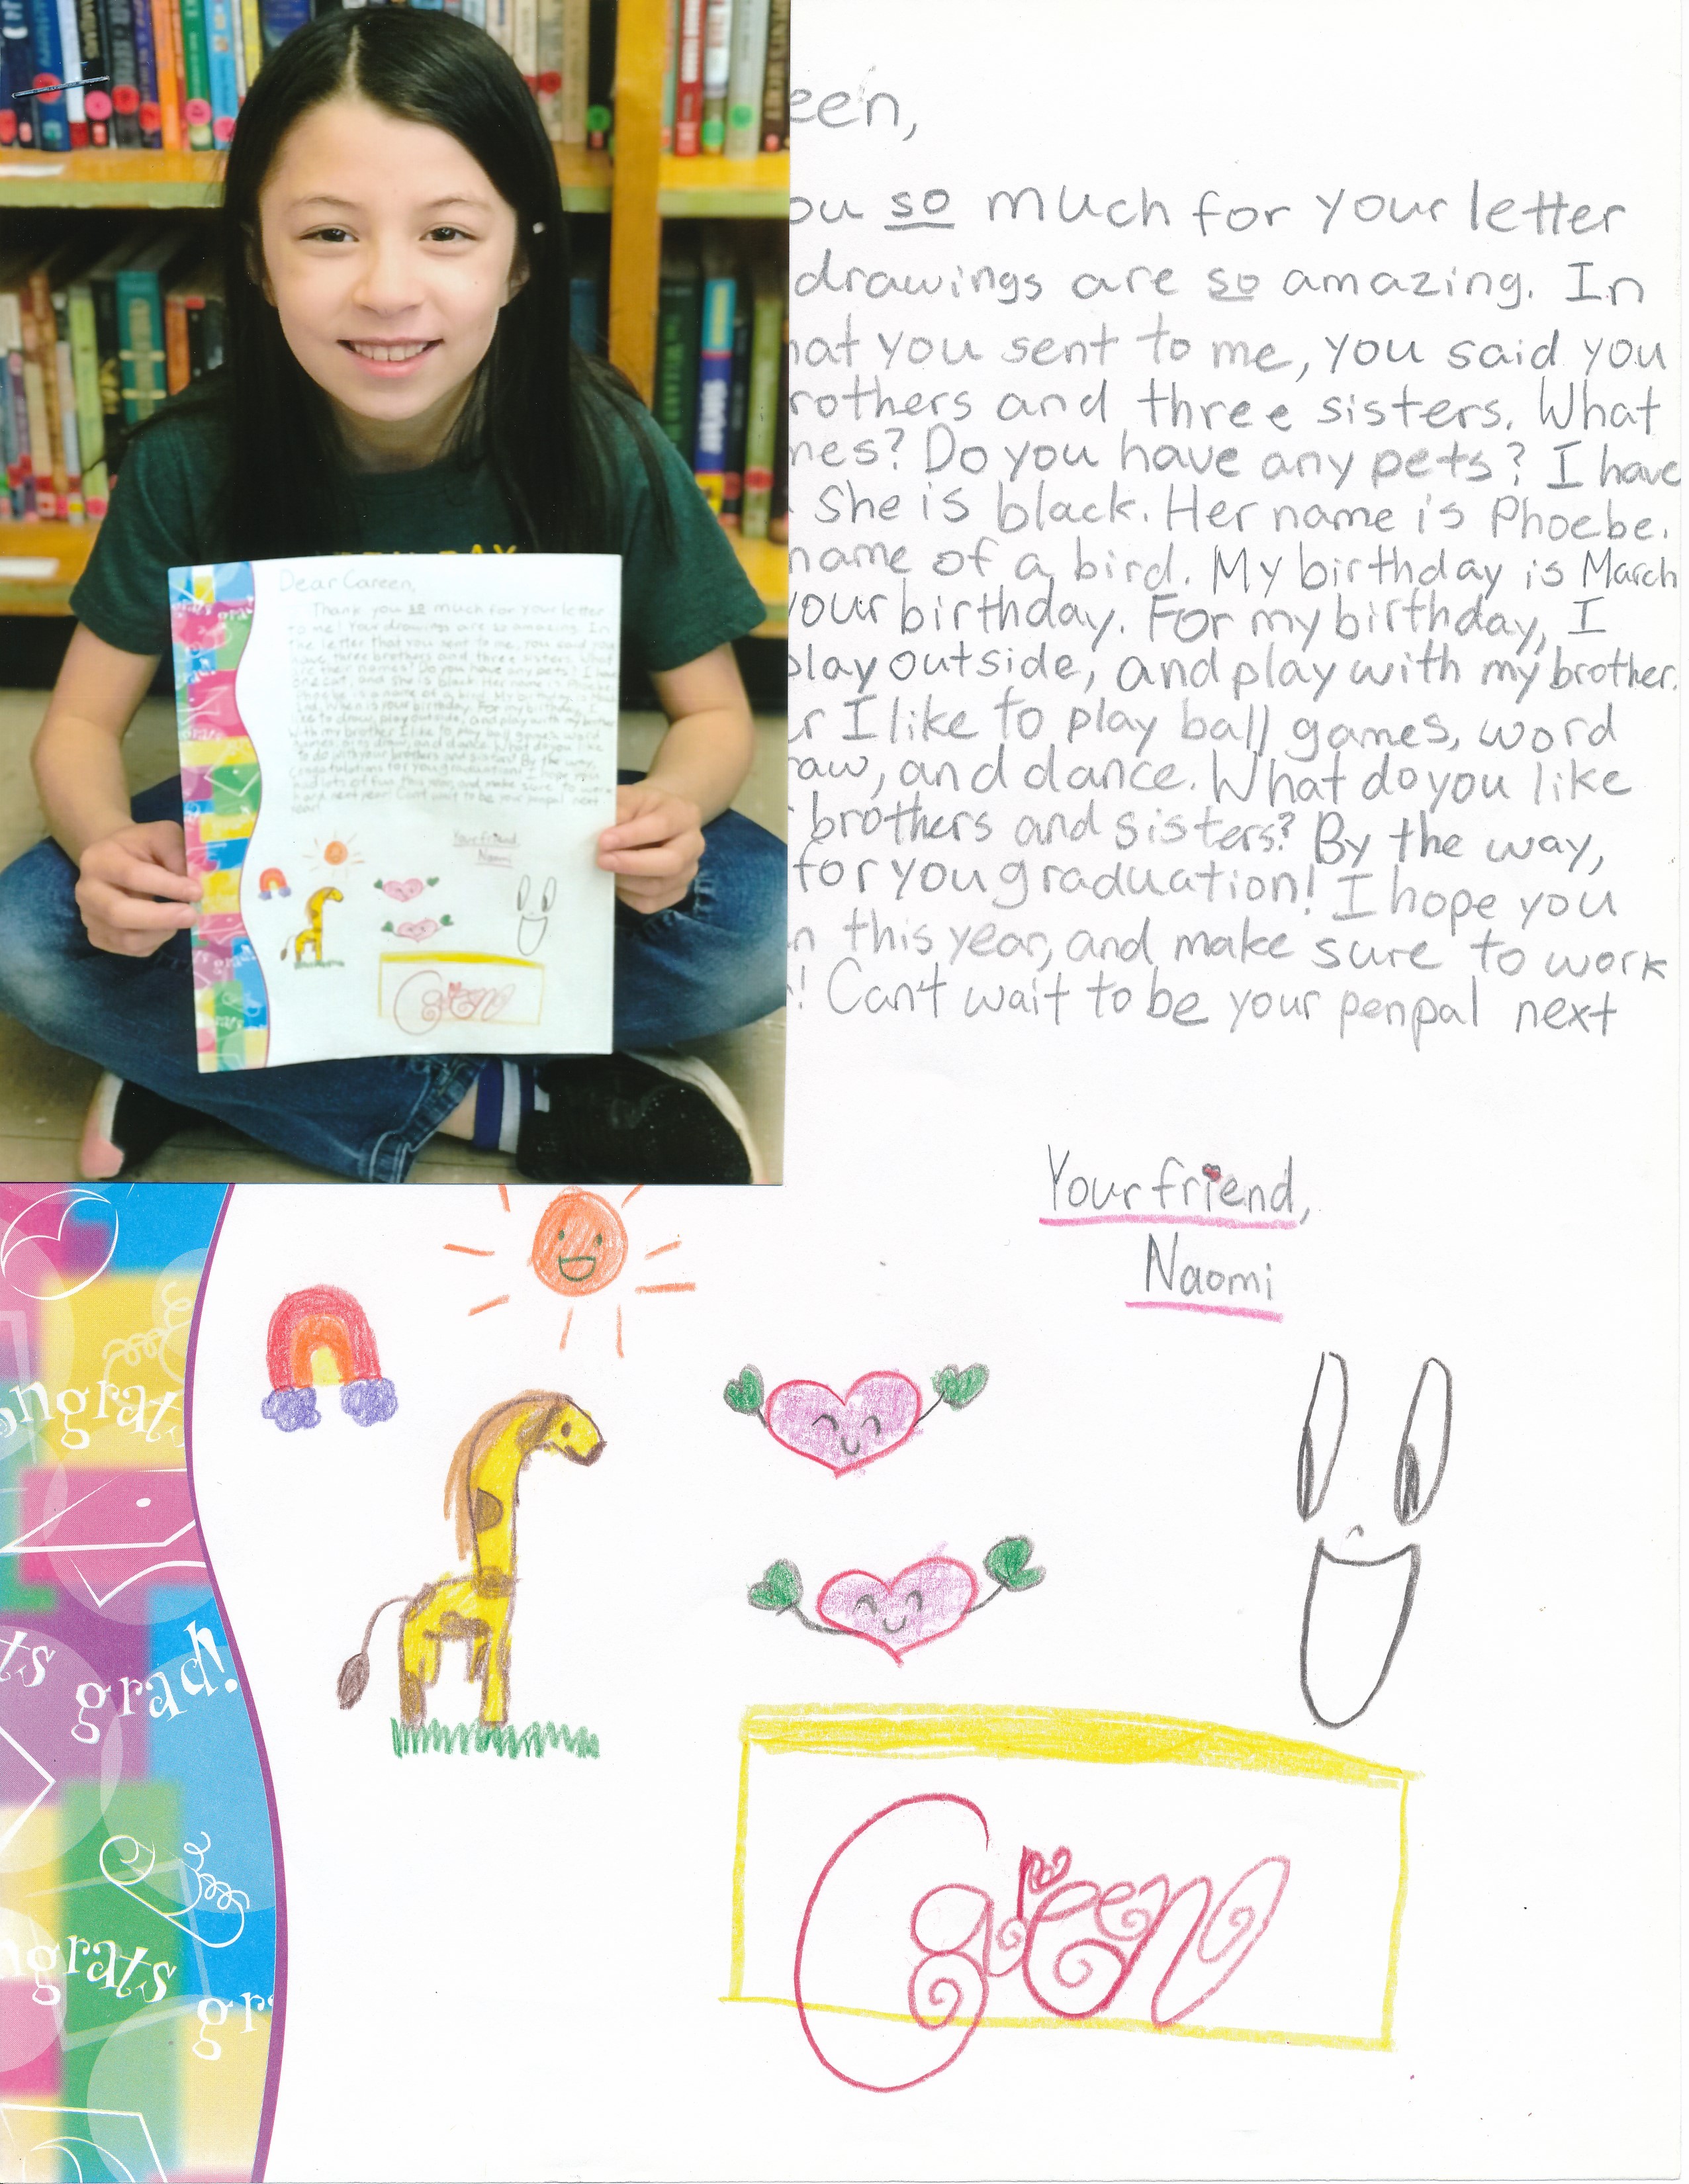 Dear Careen,
Thank you so much for your letter
to me! Your drawings are so amazing. In
the letter that you sent to me, you said you
have three brothers and three sisters. What
names? Do you have any pets? I have
one cat, and she is black. Her name is
Phoebe. is a name of a bird. My birthday is March
When is your birthday. For my birthday, I
like to draw, play outside, and play with my brother.
With my brother I like to play ball games, word
games, draw, and dance. What do you like
to do with your brothers and sisters? By the way,
congratulations for you graduation! I hope you
had lots of fun this year, and make sure to work
hard next year! Can't wait to be your penpal next
year!
Your friend,
Naomi
Careen
een,
ou so much for your letter
drawings are so amazing. In
hat you sent to me, you said you
rothers and three sisters. What
mes? Do you have any pets? I have
She is black. Her name is Phoebe.
name of a bird. My birthday is March
your birthday. For my birthday, I
play outside, and play with my brother.
r I like to play ball games, word
raw, and dance. What do you like
brothers and sisters? By the way,
for you graduation! I hope you
n this year, and make sure to work
! Can't wait to be your penpal next
Your friend,
Naomi
ongrats
ts grad!
ngrats gr
Careen